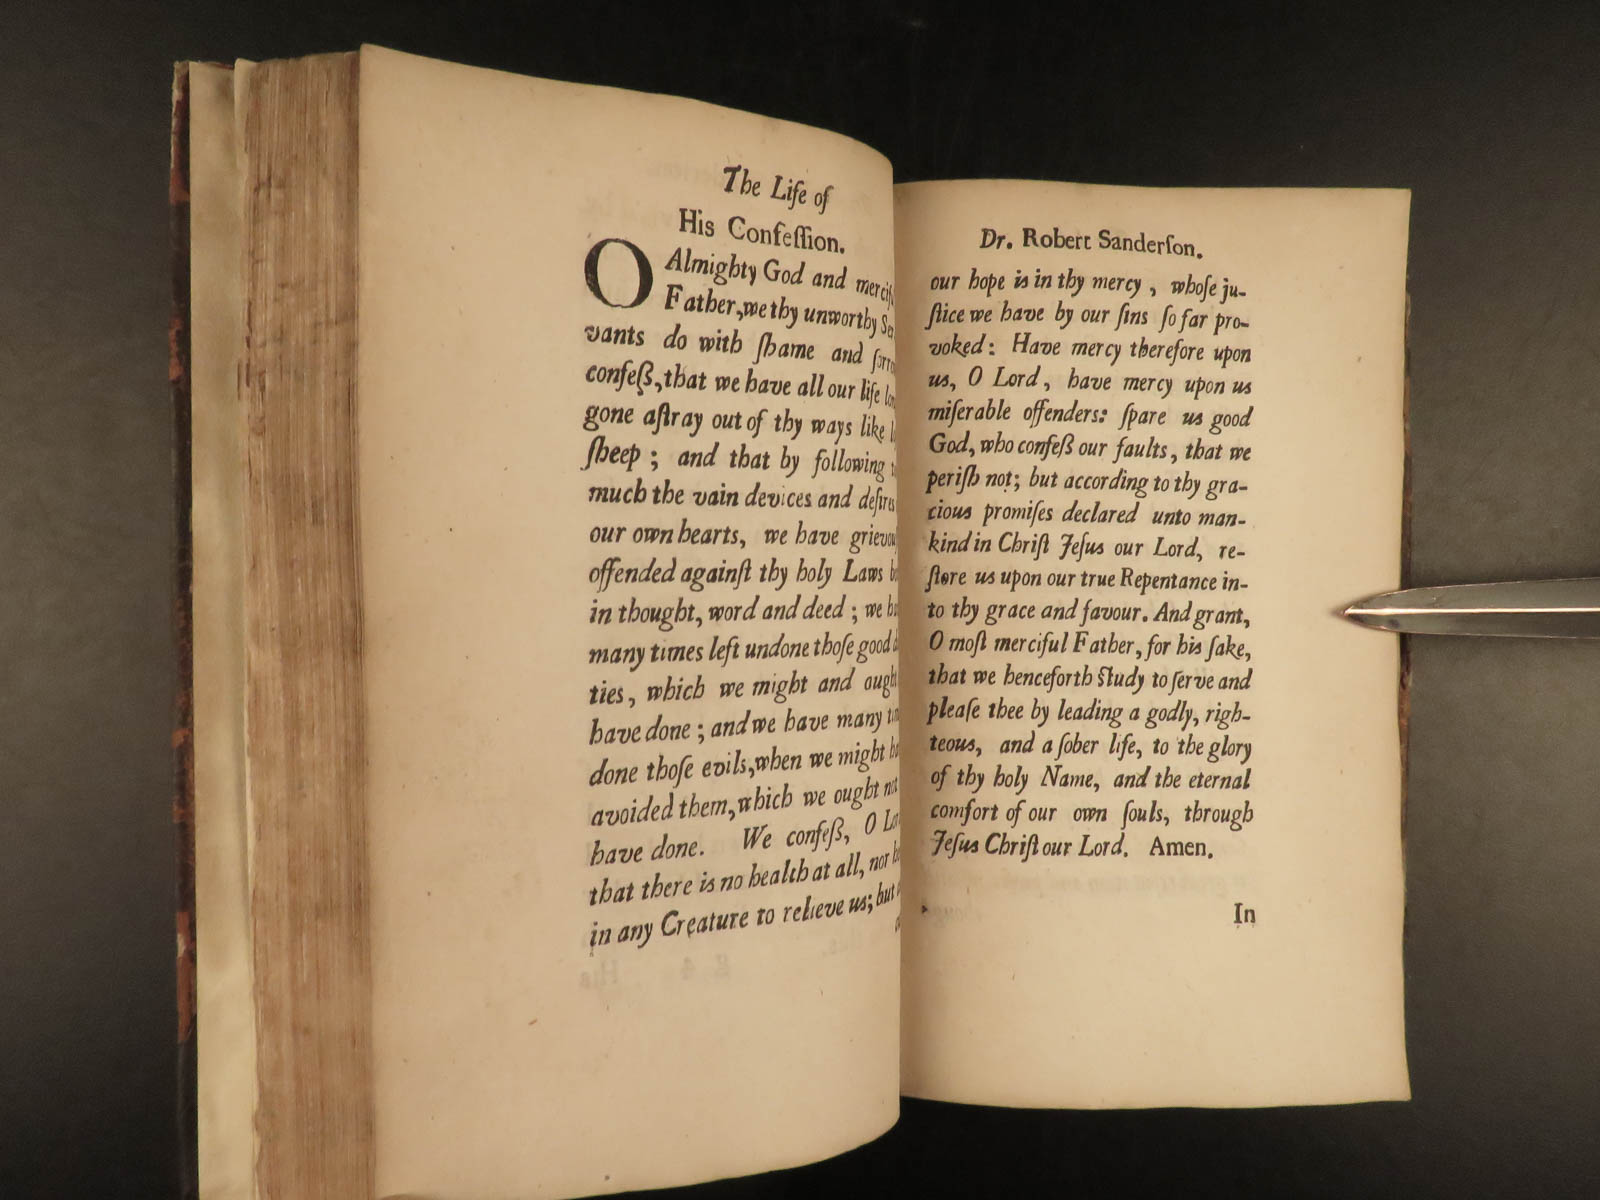 The Life of
His Confeſſion.
O Almighty God and
Father, we thy unworthy
vants do with ſhame and
confeſß, that we have all our life
gone aſtray out of thy ways like
ſheep ; and that by following
much the vain devices and deſires
our own hearts, we have
offended againſt thy holy Laws
in thought, word and deed ; we
many times left undone thoſe good
ties, which we might and ought
have done ; and we have many
done thoſe evils, when we might
avoided them, which we ought not
have done. We confeſß, O
that there is no health at all, nor
in any Creature to relieve us; but
Dr. Robert Sanderſon.
our hope is in thy mercy , whoſe ju-
ſtice we have by our ſins ſo far pro-
voked: Have mercy therefore upon
us, O Lord, have mercy upon us
miſerable offenders: ſpare us good
God, who confeſß our faults, that we
periſh not; but according to thy gra-
cious promiſes declared unto man-
kind in Chriſt Jeſus our Lord, re-
ſtore us upon our true Repentance in-
to thy grace and favour. And grant,
O moſt merciful Father, for his ſake,
that we henceforth ſtudy to ſerve and
pleaſe thee by leading a godly, righ-
teous, and a ſober life, to the glory
of thy holy Name, and the eternal
comfort of our own ſouls, through
Jeſus Chriſt our Lord. Amen.
In